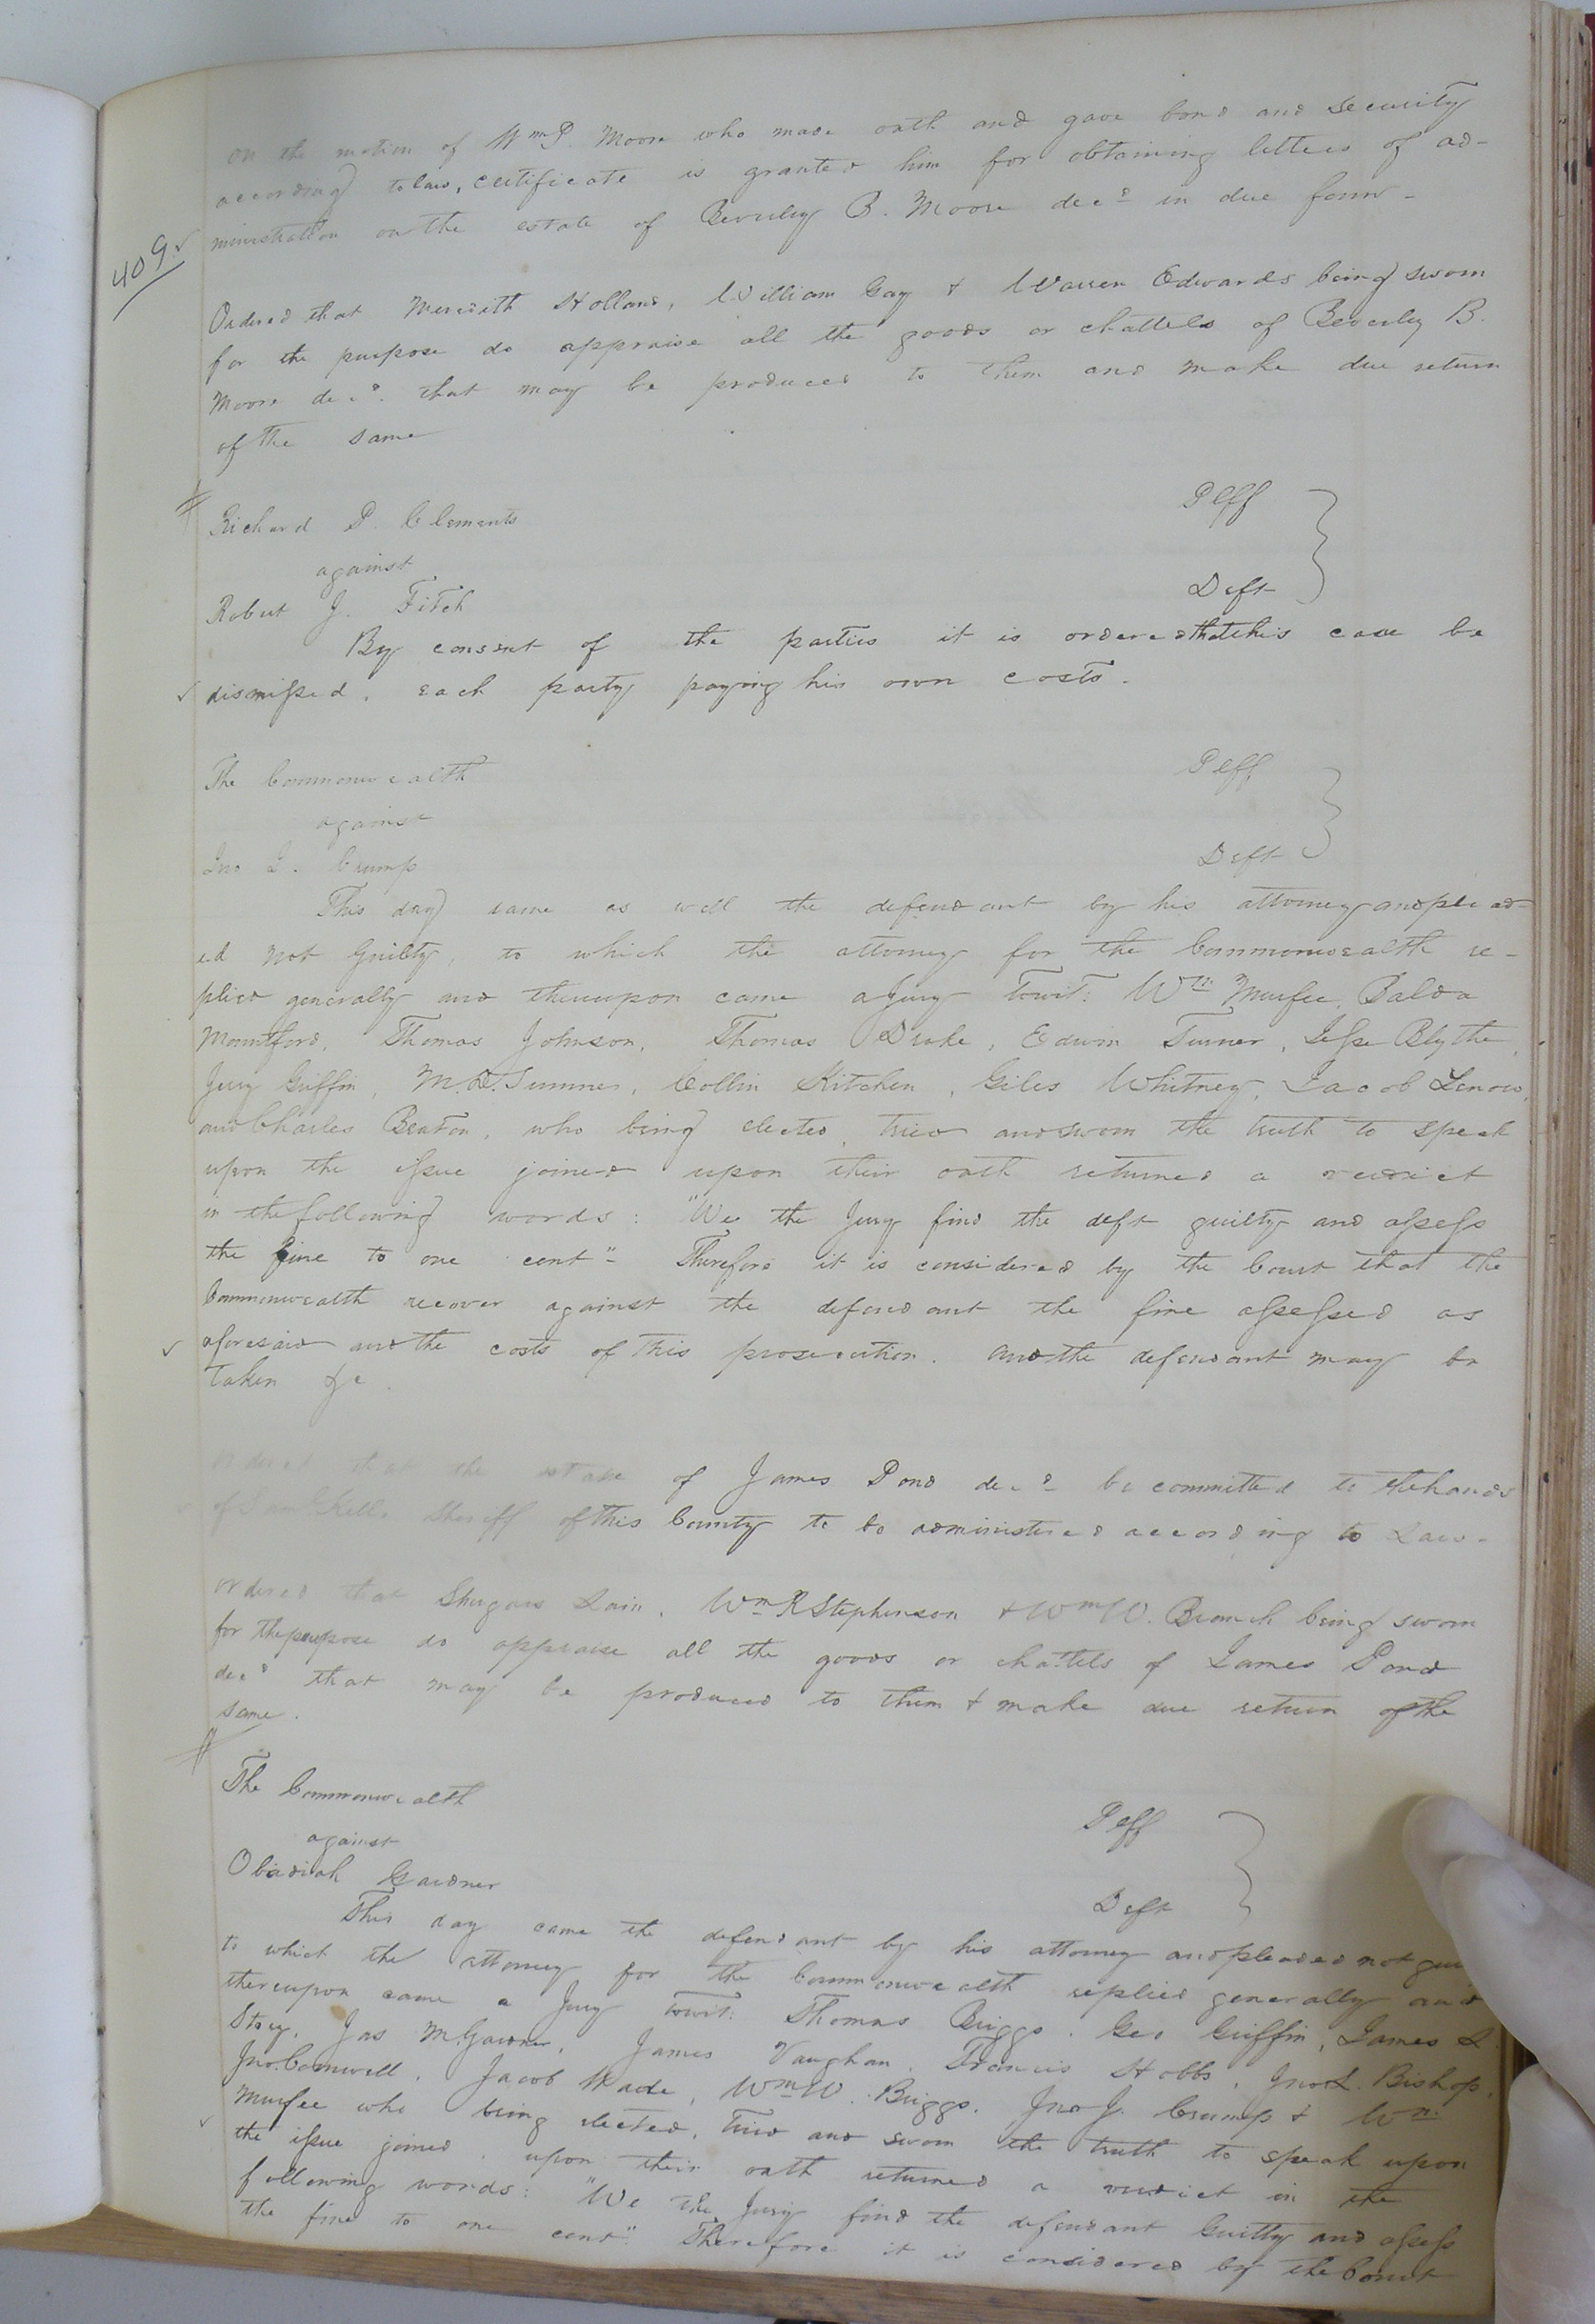 on the motion of Wm P. Moore who made oath and gave bond and security
according to law, certificate is granted him for obtaining letters of ad-
ministration on the estate of Beverley B. Moore decd in due form -
409
Ordered that Meredith Holland, William Gay & Warren Edwards being sworn
for the purpose do appraise all the goods or chattels of Beverley B.
Moore decd. that may be produced to them and make due return
of the same
Richard P. Clements Plff
against
Robert J. Fitch Deft
By consent of the parties it is ordered that this case be
dismissed, each party paying his own costs.
The Commonwealth Plff
against
Jno J. Crump Deft
This day came as well the defendant by his attorney and plead-
ed not Guilty, to which the attorney for the Commonwealth re-
plied generally and thereupon came a Jury towit: Wm Murfee,
Mountford, Thomas Johnson, Thomas Drake, Edwin Turner, Jesse Blythe,
Jerry Griffin, Sumner, Collin Kitchen, Giles Whitney, Jacob Lenow,
and Charles Beaton, who being elected, tried and sworn the truth to speak
upon the issue joined upon their oath returned a verdict
in the following words: "We the Jury find the deft guilty and assess
the fine to one cent" - Therefore it is considered by the Court that the
Commonwealth recover against the defendant the fine assessed as
aforesaid and the costs of this prosecution. and the defendant may be
taken &c.
Ordered that the estate of James Pond decd be committed to the hands
of Sheriff of this County to be administered according to Law -
Ordered that Lain, Wm R Stephenson & Wm W. Branch being sworn
for the purpose do appraise all the goods or chattels of James Pond
decd that may be produced to them & make due return of the
same.
The Commonwealth Plff
against
Obadiah Gardner Deft
This day came the defendant by his attorney and pleaded not
to which the attorney for the Commonwealth replied generally and
thereupon came a Jury towit: Thomas Briggs, Geo Griffin, James L.
Story, Jas M. Gardner, James Vaughan, Francis Hobbs, Jno L. Bishop,
Jno. Cornwell, Jacob Wade, Wm W. Briggs, Jno J. Crump & Wm
Murfee who being elected, tried and sworn the truth to speak upon
the issue joined, upon their oath returned a verdict in the
following words: "We the Jury find the defendant Guilty and assess
the fine to one cent". Therefore it is considered by the Court